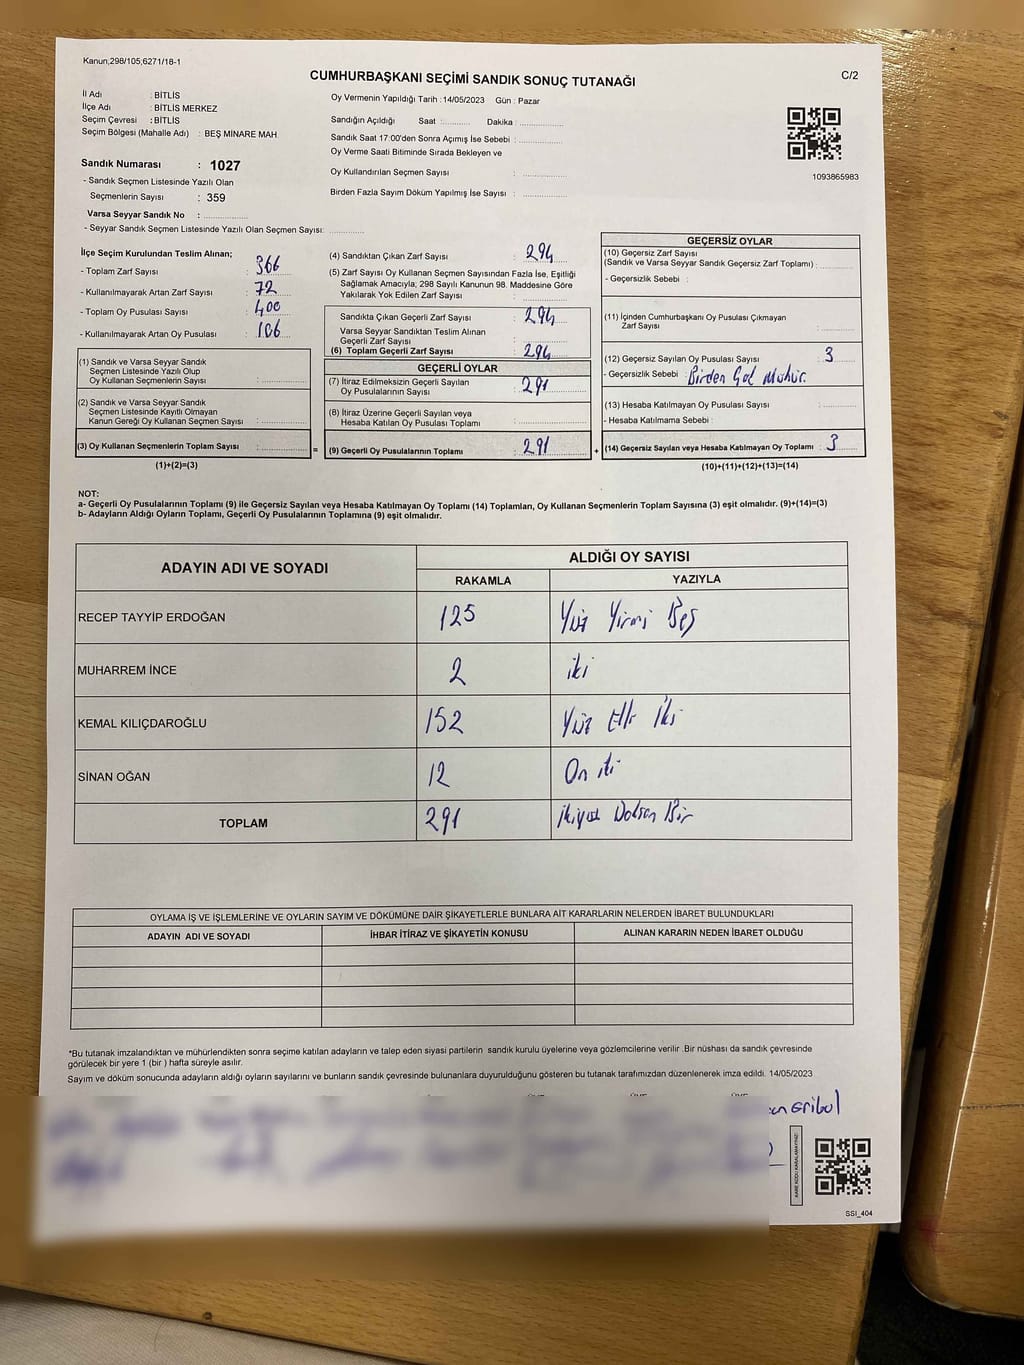 Kanun;298/105;6271/18-1
CUMHURBAŞKANI SEÇİMİ SANDIK SONUÇ TUTANAĞI
C/2
İl Adı : BİTLİS
İlçe Adı : BİTLİS MERKEZ
Seçim Çevresi : BİTLİS
Seçim Bölgesi (Mahalle Adı) : BEŞ MİNARE MAH
Sandık Numarası : 1027
- Sandık Seçmen Listesinde Yazılı Olan
Seçmenlerin Sayısı : 359
Varsa Seyyar Sandık No :
- Seyyar Sandık Seçmen Listesinde Yazılı Olan Seçmen Sayısı:
Oy Vermenin Yapıldığı Tarih : 14/05/2023 Gün : Pazar
Sandığın Açıldığı Saat : Dakika :
Sandık Saat 17:00'den Sonra Açımış İse Sebebi :
Oy Verme Saati Bitiminde Sırada Bekleyen ve
Oy Kullandırılan Seçmen Sayısı :
Birden Fazla Sayım Döküm Yapılmış İse Sayısı :
1093865983
İlçe Seçim Kurulundan Teslim Alınan;
- Toplam Zarf Sayısı : 366
- Kullanılmayarak Artan Zarf Sayısı : 72
- Toplam Oy Pusulası Sayısı : 400
- Kullanılmayarak Artan Oy Pusulası : 106
(1) Sandık ve Varsa Seyyar Sandık
Seçmen Listesinde Yazılı Olup
Oy Kullanan Seçmenlerin Sayısı :
(2) Sandık ve Varsa Seyyar Sandık
Seçmen Listesinde Kayıtlı Olmayan
Kanun Gereği Oy Kullanan Seçmen Sayısı :
(3) Oy Kullanan Seçmenlerin Toplam Sayısı : =
(1)+(2)=(3)
(4) Sandıktan Çıkan Zarf Sayısı : 294
(5) Zarf Sayısı Oy Kullanan Seçmen Sayısından Fazla İse, Eşitliği
Sağlamak Amacıyla; 298 Sayılı Kanunun 98. Maddesine Göre
Yakılarak Yok Edilen Zarf Sayısı :
Sandıkta Çıkan Geçerli Zarf Sayısı : 294
Varsa Seyyar Sandıktan Teslim Alınan
Geçerli Zarf Sayısı :
(6) Toplam Geçerli Zarf Sayısı : 294
GEÇERLİ OYLAR
(7) İtiraz Edilmeksizin Geçerli Sayılan
Oy Pusulalarının Sayısı : 291
(8) İtiraz Üzerine Geçerli Sayılan veya
Hesaba Katılan Oy Pusulası Toplamı :
(9) Geçerli Oy Pusulalarının Toplamı : 291 +
GEÇERSİZ OYLAR
(10) Geçersiz Zarf Sayısı
(Sandık ve Varsa Seyyar Sandık Geçersiz Zarf Toplamı) :
- Geçersizlik Sebebi :
(11) İçinden Cumhurbaşkanı Oy Pusulası Çıkmayan
Zarf Sayısı :
(12) Geçersiz Sayılan Oy Pusulası Sayısı : 3
- Geçersizlik Sebebi : Birden Çok Mühür.
(13) Hesaba Katılmayan Oy Pusulası Sayısı :
- Hesaba Katılmama Sebebi :
(14) Geçersiz Sayılan veya Hesaba Katılmayan Oy Toplamı : 3
(10)+(11)+(12)+(13)=(14)
NOT:
a- Geçerli Oy Pusulalarının Toplamı (9) ile Geçersiz Sayılan veya Hesaba Katılmayan Oy Toplamı (14) Toplamları, Oy Kullanan Seçmenlerin Toplam Sayısına (3) eşit olmalıdır. (9)+(14)=(3)
b- Adayların Aldığı Oyların Toplamı, Geçerli Oy Pusulalarının Toplamına (9) eşit olmalıdır.
ADAYIN ADI VE SOYADI ALDIĞI OY SAYISI
RAKAMLA YAZIYLA
RECEP TAYYİP ERDOĞAN 125 Yüz Yirmi Beş
MUHARREM İNCE 2 iki
KEMAL KILIÇDAROĞLU 152 Yüz Elli İki
SİNAN OĞAN 12 On iki
TOPLAM 291 İkiyüz Doksan Bir
OYLAMA İŞ VE İŞLEMLERİNE VE OYLARIN SAYIM VE DÖKÜMÜNE DAİR ŞİKAYETLERLE BUNLARA AİT KARARLARIN NELERDEN İBARET BULUNDUKLARI
ADAYIN ADI VE SOYADI İHBAR İTİRAZ VE ŞİKAYETİN KONUSU ALINAN KARARIN NEDEN İBARET OLDUĞU
*Bu tutanak imzalandıktan ve mühürlendikten sonra seçime katılan adayların ve talep eden siyasi partilerin sandık kurulu üyelerine veya gözlemcilerine verilir .Bir nüshası da sandık çevresinde
görülecek bir yere 1 (bir ) hafta süreyle asılır.
Sayım ve döküm sonucunda adayların aldığı oyların sayılarını ve bunların sandık çevresinde bulunanlara duyurulduğunu gösteren bu tutanak tarafımızdan düzenlenerek imza edildi. 14/05/2023
KARE KODU KARALAMAYINIZ!
SSİ_404